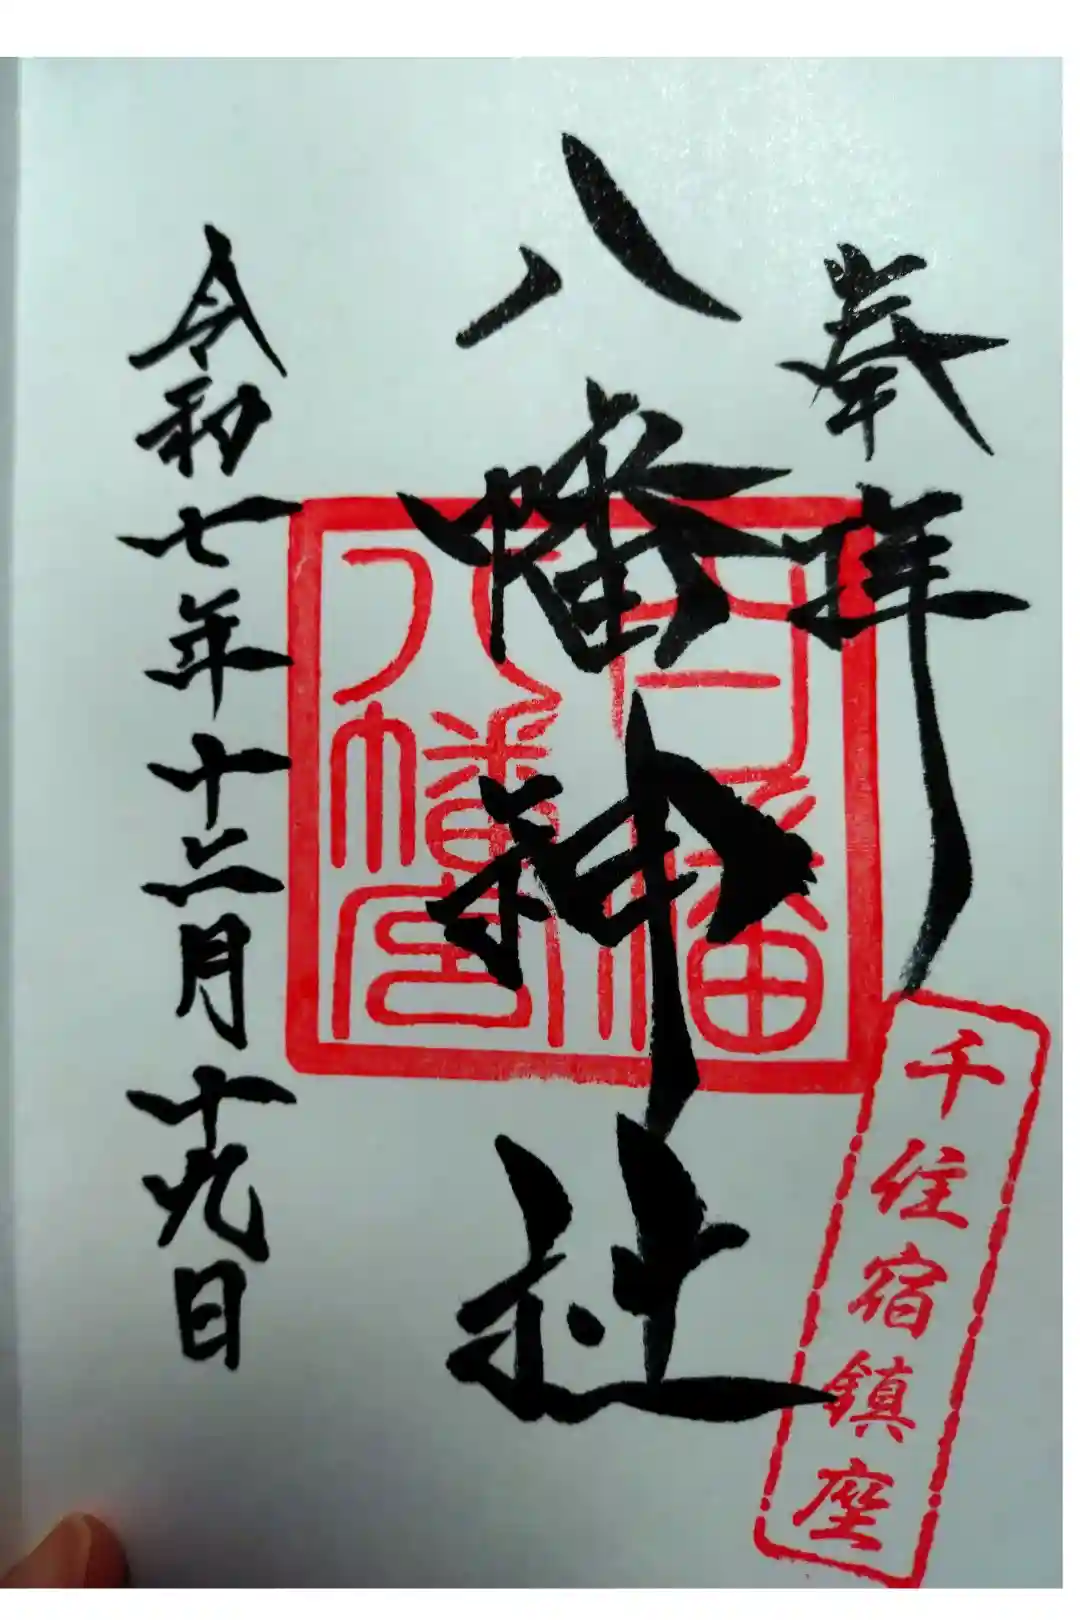 奉拝
千住宿鎮座
八幡神社
八幡宮
令和七年十二月十九日